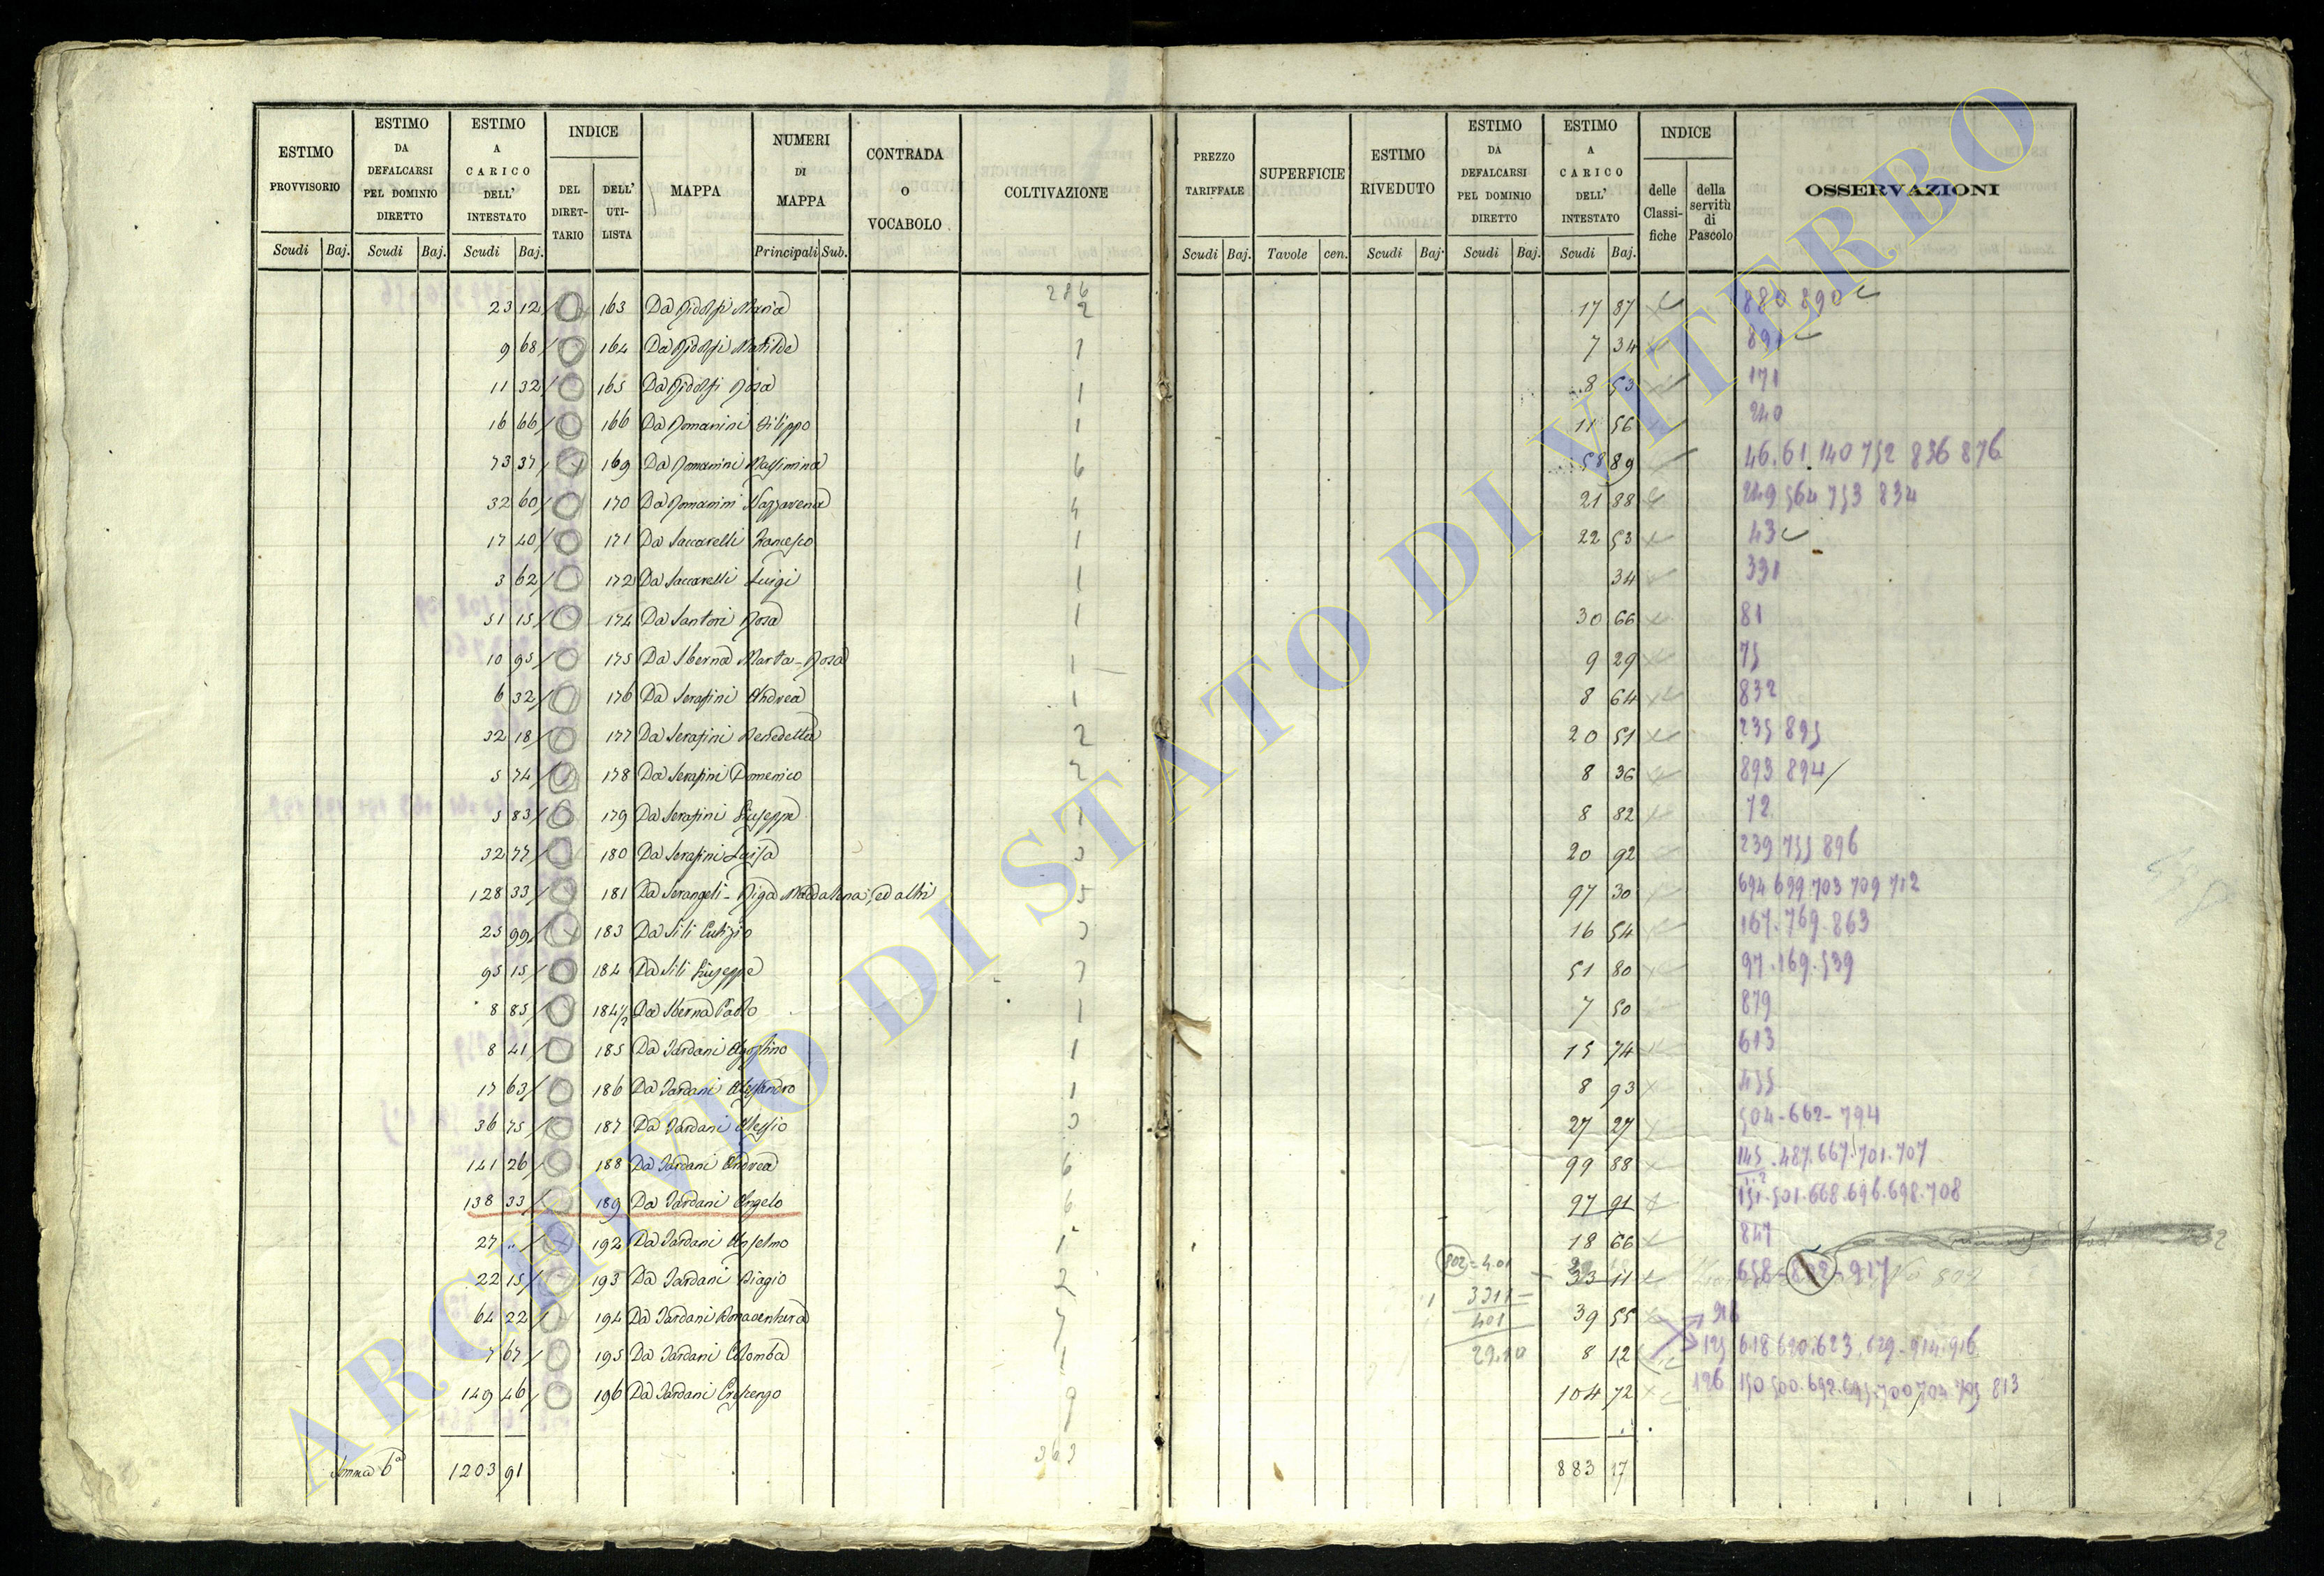 ESTIMO PROVVISORIO Scudi Baj.
ESTIMO DA DEFALCARSI PEL DOMINIO DIRETTO Scudi Baj.
ESTIMO A CARICO DELL' INTESTATO Scudi Baj.
INDICE DEL DIRET-TARIO DELL' UTI-LISTA
MAPPA
NUMERI DI MAPPA Principali Sub.
CONTRADA O VOCABOLO
COLTIVAZIONE
PREZZO TARIFFALE Scudi Baj.
SUPERFICIE Tavole cen.
ESTIMO RIVEDUTO Scudi Baj.
ESTIMO DA DEFALCARSI PEL DOMINIO DIRETTO Scudi Baj.
ESTIMO A CARICO DELL' INTESTATO Scudi Baj.
INDICE delle Classi-fiche della servitù di Pascolo
OSSERVAZIONI
286
23 12 163 Da Ridolfi Maria 2 17 87 880 890
9 68 164 Da Ridolfi Matilde 1 7 34 891
11 32 165 Da Ridolfi Rosa 1 8 53 171
16 66 166 Da Romanini Filippo 1 11 56 240
73 37 169 Da Romanini Massimina 6 58 89 46. 61. 140 752 836 876
32 60 170 Da Romanini Nazzarena 4 21 88 249 564 753 834
17 40 171 Da Saccarelli Francesco 1 22 53 43
3 62 172 Da Saccarelli Luigi 1 34 331
51 15 174 Da Santori Rosa 1 30 66 81
10 95 175 Da Sberna Marta-Rosa 1 9 29 75
6 32 176 Da Serafini Andrea 1 8 64 832
32 18 177 Da Serafini Benedetta 2 20 51 235 895
5 74 178 Da Serafini Domenico 2 8 36 893 894
5 83 179 Da Serafini Giuseppe 1 8 82 72
32 77 180 Da Serafini Luisa 3 20 92 239 755 896
128 33 181 Da Serangeli-Riga Maddalena, ed altri 5 97 30 694 699 703 709 712
25 99 183 Da Sili Eutizio 3 16 54 167. 769. 863
95 15 184 Da Sili Giuseppe 3 51 80 97. 169. 539
8 85 184 1/2 Da Sberna Paolo 1 7 50 879
8 41 185 Da Tardani Agostino 1 15 74 613
17 63 186 Da Tardani Alessandro 1 8 93 455
36 75 187 Da Tardani Alessio 3 27 27 504-662-794
141 26 188 Da Tardani Andrea 6 99 88 145. 487. 667. 701. 707
138 33 189 Da Tardani Angelo 6 97 91 151. 501. 668. 696. 698. 708
27 " 192 Da Tardani Anselmo 1 18 66 847
22 15 193 Da Tardani Biagio 2 802=4.01 33 11 658-802-917
64 22 194 Da Tardani Bonaventura 7 3311 39 55 916
401
7 67 195 Da Tardani Colomba 1 29.10 8 12 125 618 620. 623. 629-914. 916
149 46 196 Da Tardani Crescenzo 9 104 72 126 150 500. 692. 695. 700 704 705 813
363
Somma 6a 1203 91 883 17
ARCHIVIO DI STATO DI VITERBO